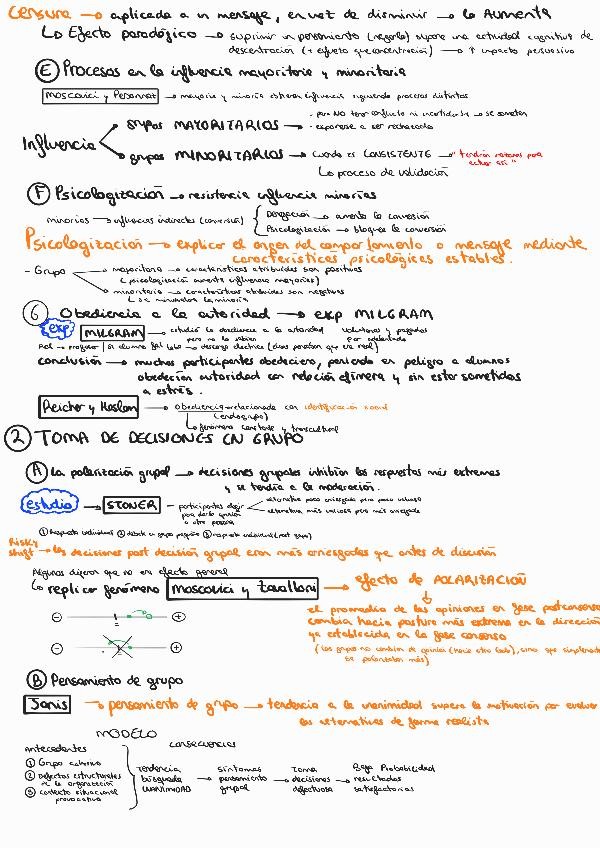 Censura → aplicada a un mensaje, en vez de disminuir → lo AUMENTA
↳ Efecto paradójico → suprimir un pensamiento (negarlo) supone una actividad cognitiva de
descentración (+ esfuerzo que concentración) → ↑ impacto persuasivo
Ⓔ Procesos en la influencia mayoritaria y minoritaria
Moscovici y Personnaz → mayoría y minoría obtienen influencia siguiendo procesos distintos
Influencia
grupos MAYORITARIOS → - por NO tener conflicto ni incertidumbre → se someten
- exponerse a ser rechazado
grupos MINORITARIOS → cuando es CONSISTENTE → "tendrán razones para actuar así"
↳ proceso de validación
Ⓕ Psicologización → resistencia influencia minorías
minorías → influencias indirectas (conversión)
Denegación → aumenta la conversión
Psicologización → bloquea la conversión
Psicologización → explicar el origen del comportamiento o mensaje mediante
características psicológicas estables.
- Grupo
mayoritario → características atribuidas son positivas
(psicologización aumenta influencia mayoría)
minoritario → características atribuidas son negativas
↳ se minusvalora la minoría
⑥ Obediencia a la autoridad → exp MILGRAM
exp MILGRAM → estudiar la obediencia a la autoridad
pero no lo sabían
voluntarios y pagados
por adelantado
Rol → profesor / Si alumno → descarga eléctrica (ellos pensaban que era real)
conclusión → muchos participantes obedecieron, poniendo en peligro a alumnos
obedecían autoridad con relación efímera y sin estar sometidos
a estrés.
Reicher y Haslam → obediencia → relacionada con identificación social
(endogrupo)
↳ fenómeno constante y transcultural
② TOMA DE DECISIONES EN GRUPO
Ⓐ La polarización grupal → decisiones grupales inhibían las respuestas más extremas
y se tendía a la moderación.
estudio → STONER - participantes elegir
para darle opinión
a otra persona
alternativa poco arriesgada pero poco valiosa
alternativa más valiosa pero más arriesgada
① Respuesta individual ② debate en grupo pequeño ③ respuesta individual (post grupo)
Risky
shift → las decisiones post decisión grupal eran más arriesgadas que antes de discusión
Algunos dijeron que no era efecto general
↳ replicar fenómeno Moscovici y Zavalloni → efecto de POLARIZACIÓN
el promedio de las opiniones en fase postconsenso
cambia hacia postura más extrema en la dirección
ya establecida en la fase consenso
(los grupos no cambian de opinión (hacia otro lado), sino que simplemente
se polarizaban más)
⊖ ⊕
⊖ ⊕
Ⓑ Pensamiento de grupo
Janis → pensamiento de grupo → tendencia a la unanimidad supera la motivación por evaluar
las alternativas de forma realista
MODELO
Antecedentes
① Grupo cohesivo
② Defectos estructurales
de la organización
③ contexto situacional
provocativo
consecuencias
Tendencia
búsqueda
UNANIMIDAD
→ síntomas
pensamiento
grupal
→ Toma
decisiones
defectuosa
→ Baja Probabilidad
resultados
satisfactorios